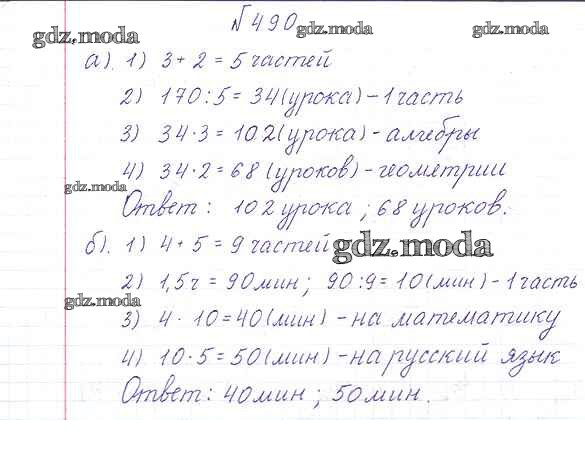 № 490
gdz.moda gdz.moda gdz.moda
а). 1) 3 + 2 = 5 частей
2) 170 : 5 = 34 (урока) – 1 часть
3) 34 · 3 = 102 (урока) - алгебры
4) 34 · 2 = 68 (уроков) – геометрии
gdz.moda
Ответ: 102 урока ; 68 уроков.
б). 1) 4 + 5 = 9 частей gdz.moda
2) 1,5 ч = 90 мин ; 90 : 9 = 10 (мин) – 1 часть
gdz.moda gdz.moda
3) 4 · 10 = 40 (мин) – на математику
4) 10 · 5 = 50 (мин) – на русский язык
Ответ: 40 мин ; 50 мин.